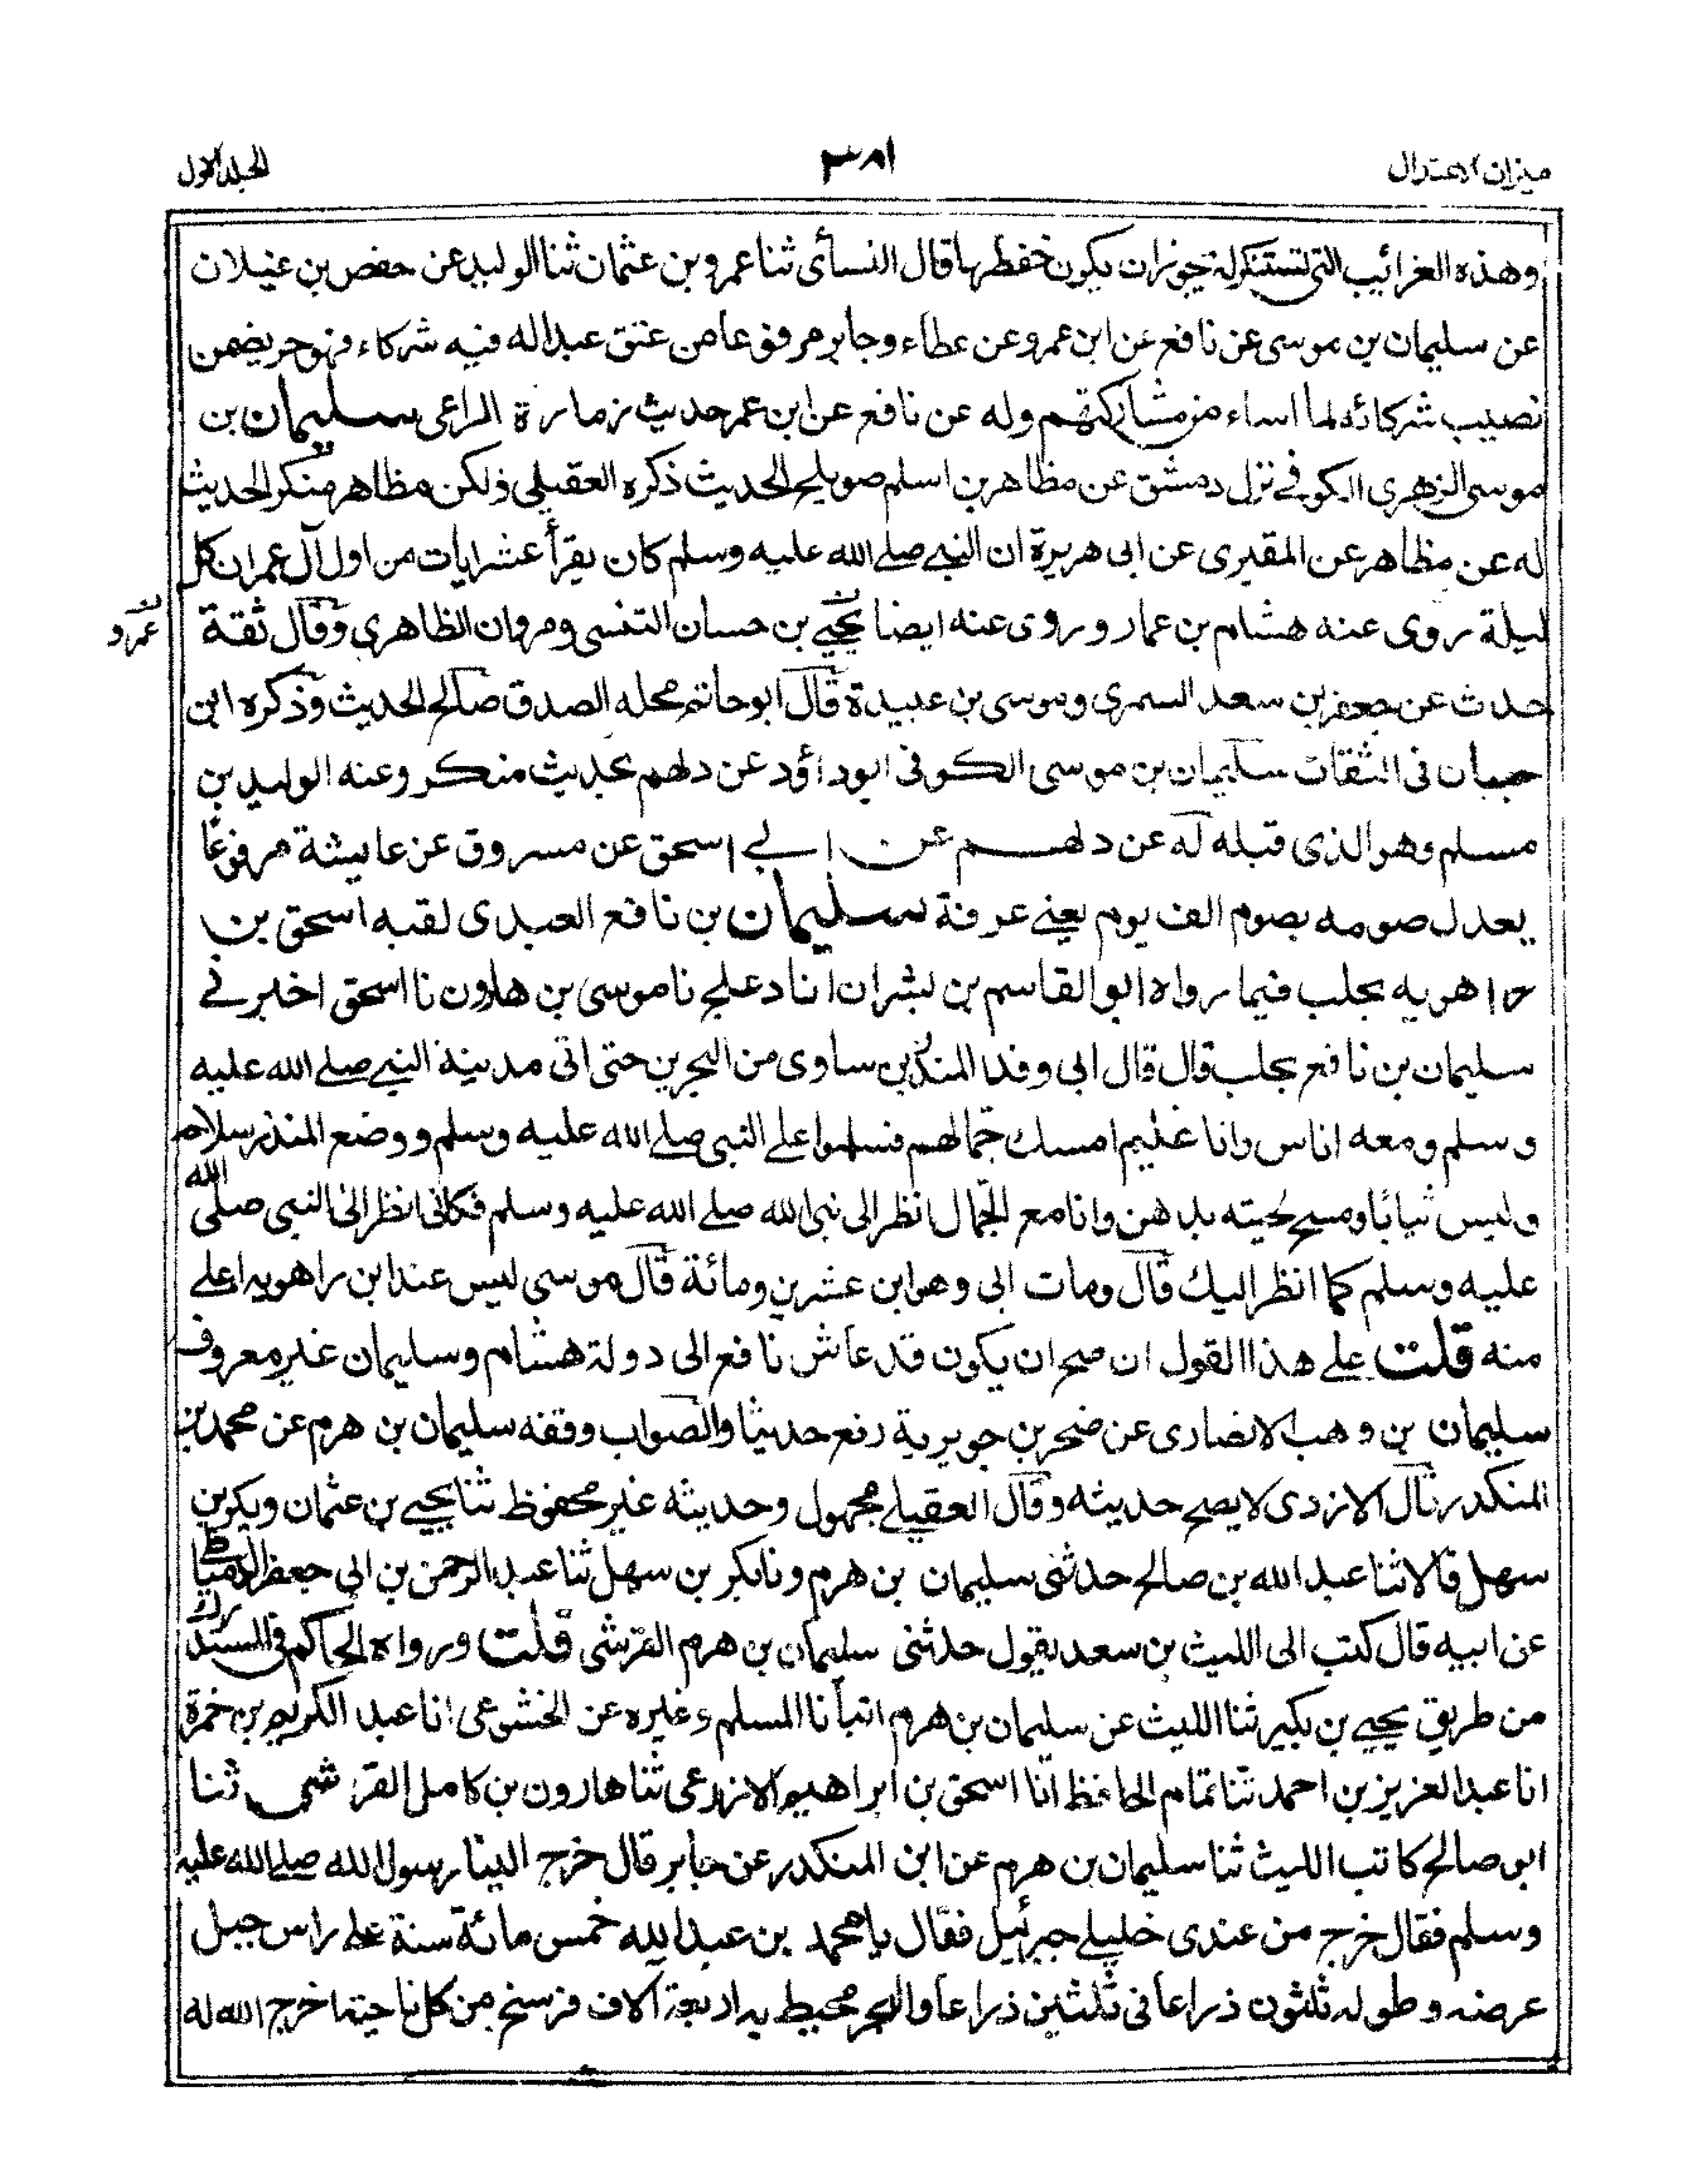 ميزان الاعتدال
٣٨١
الجلد الاول
وهذه الغرائب التى تستنكر له يجوز ان يكون حفظها قال النسائى ثنا عمرو بن عثمان ثنا الوليد عن حفص بن غيلان
عن سليمان بن موسى عن نافع عن ابن عمرو عن عطاء وجابر مرفوعا من عتق عبدا له فيه شركاء فهو حر يضمن
نصيب شركائه لما اساء من مشاركتهم وله عن نافع عن ابن عمر حديث زمارة الراعى سليمان بن
موسى الزهرى الكوفے نزل دمشق عن مظاهر بن اسلم صويلح الحديث ذكره العقيلى ولكن مظاهر منكر الحديث
له عن مظاهر عن المقبرى عن ابى هريرة ان النبے صلے الله عليه وسلم كان يقرأ عشر ايات من اول آل عمران كل
ليلة روى عنه هشام بن عمار وروى عنه ايضا يحيے بن حسان التنسى ومروان الظاهري وقال ثقة
عمرو
حدث عن جعفر بن سعد السمرى وموسى بن عبيدة قال ابو حاتم محله الصدق صالح الحديث وذكره ابن
حبان فى الثقات سليمان بن موسى الكوفى ابوداؤد عن دلهم بحديث منكر وعنه الوليد بن
مسلم وهو الذى قبله له عن دلهم عن ابے اسحق عن مسروق عن عايشة مرفوعا
يعدل صومه بصوم الف يوم يعنے عرفة سليمان بن نافع العبدى لقبه اسحق بن
راهويه بحلب فيما رواه ابو القاسم بن بشران انا دعلج نا موسى بن هارون نا اسحق اخبرنے
سليمان بن نافع بحلب قال قال ابى وفد المنذر بن ساوى من البحرين حتى اتى مدينة النبے صلے الله عليه
وسلم ومعه اناس وانا غليم امسك جمالهم فسلموا على النبى صلے الله عليه وسلم ووضع المنذر سلاحه
ولبس ثيابا ومسح لحيته بدهن وانا مع الجمال انظر الى نبى الله صلے الله عليه وسلم فكانى انظر الى النبى صلى الله
عليه وسلم كما انظر اليك قال ومات ابى وهو ابن عشرين ومائة قال موسى ليس عند ابن راهويه اعلے
منه قلت علے هذا القول ان صح ان يكون قد عاش نافع الى دولة هشام وسليمان غير معروف
سليمان بن وهب الانصارى عن ضحر بن جويرية رفع حديثا والصواب وقفه سليمان بن هرم عن محمد بن
المنكدر قال الازدى لا يصح حديثه وقال العقيلے مجهول وحديثه غير محفوظ ثنا يحيے بن عثمان وبكر بن
سهل قالا ثنا عبد الله بن صالح حدثنى سليمان بن هرم ونا بكر بن سهل ثنا عبد الرحمن بن ابى جعفر الدمياطے
عن ابيه قال كتب الى الليث بن سعد يقول حدثنى سليمان بن هرم القرشى قلت ورواه الحاكم فى المستدرك
من طريق يحيے بن بكير ثنا الليث عن سليمان بن هرم انبأنا المسلم وغيره عن الخشوعى انا عبد الكريم بن حمزة
انا عبد العزيز بن احمد ثنا تمام الحافظ انا اسحق بن ابراهيم الازرعى ثنا هارون بن كامل القرشى ثنا
ابو صالح كاتب الليث ثنا سليمان بن هرم عن ابن المنكدر عن جابر قال خرج الينا رسول الله صلے الله عليه
وسلم فقال خرج من عندى خليلے جبرئيل فقال يا محمد بن عبد الله خمس مائة سنة على راس جبل
عرضه وطوله ثلثون ذراعا فى ثلثين ذراعا والبحر محيط به اربعة آلاف فرسخ من كل ناحية اخرج الله له